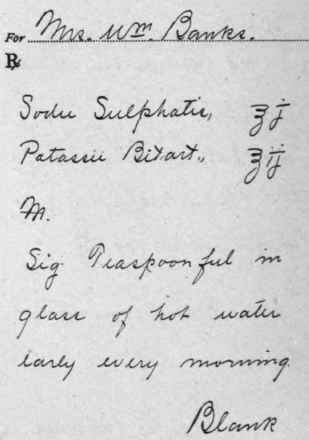 For Mrs. Wm. Banks.
℞
Sodii Sulphatis, ℥j
Patassii Bitart., ℥ij
M.
Sig Teaspoonful in
glass of hot water
early every morning.
Blank